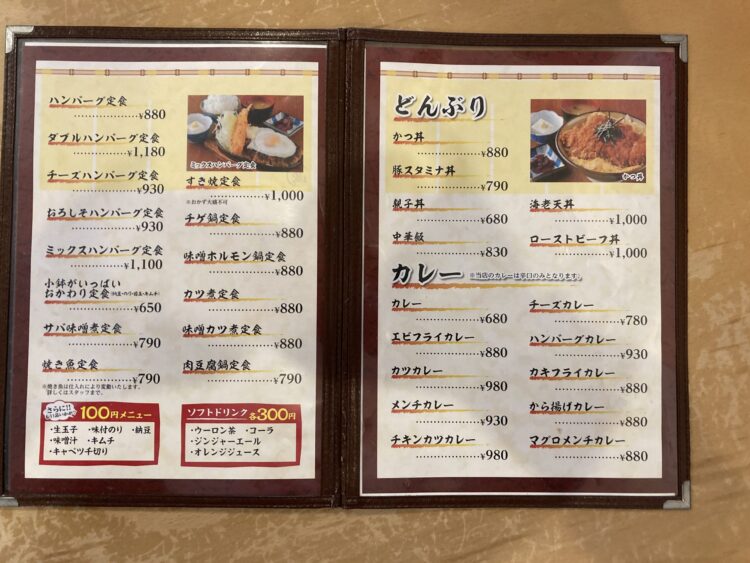 ハンバーグ定食
¥880
ダブルハンバーグ定食
¥1,180
チーズハンバーグ定食
¥930
おろしそハンバーグ定食
¥930
ミックスハンバーグ定食
¥1,100
小鉢がいっぱい
おかわり定食
¥650
サバ味噌煮定食
¥790
焼き魚定食
¥790
※焼き魚は仕入れにより変動いたします。
詳しくはスタッフまで。
さらに!!
100円メニュー
・生玉子 ・味付のり ・納豆
・味噌汁 ・キムチ
・キャベツ千切り
ミックスハンバーグ定食
すき焼定食
¥1,000
※おかず大盛不可
チゲ鍋定食
¥880
味噌ホルモン鍋定食
¥880
カツ煮定食
¥880
味噌カツ煮定食
¥880
肉豆腐鍋定食
¥790
ソフトドリンク 各300円
・ウーロン茶 ・コーラ
・ジンジャーエール
・オレンジジュース
どんぶり
かつ丼
¥880
豚スタミナ丼
¥790
親子丼
¥680
中華飯
¥830
かつ丼
海老天丼
¥1,000
ローストビーフ丼
¥1,000
カレー ※当店のカレーは辛口のみとなります。
カレー
¥680
エビフライカレー
¥880
カツカレー
¥980
メンチカレー
¥930
チキンカツカレー
¥980
チーズカレー
¥780
ハンバーグカレー
¥930
カキフライカレー
¥880
から揚げカレー
¥880
マグロメンチカレー
¥880